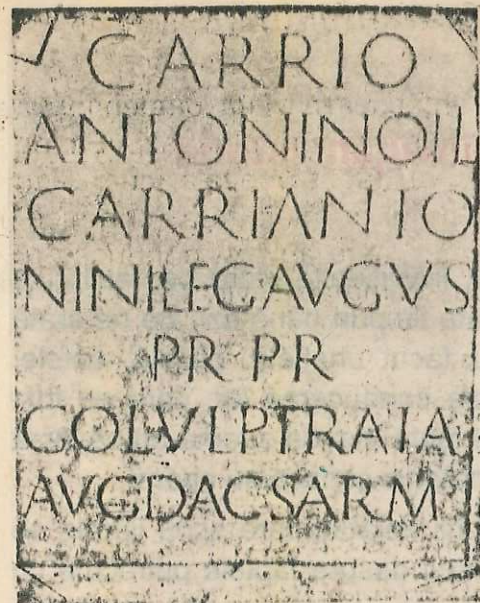 CARRIO
ANTONINOIL
CARRIANTO
NINILEGAVGVS
PR PR
COLVLPTRAIA
AVGDACSARM